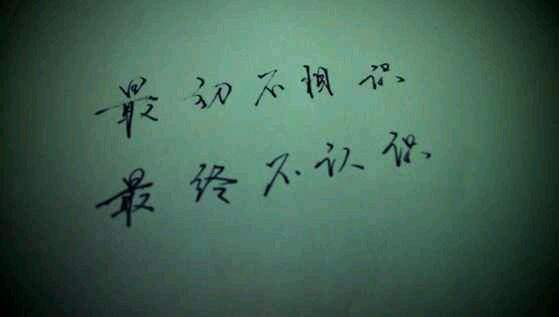 最初不相识
最终不认识